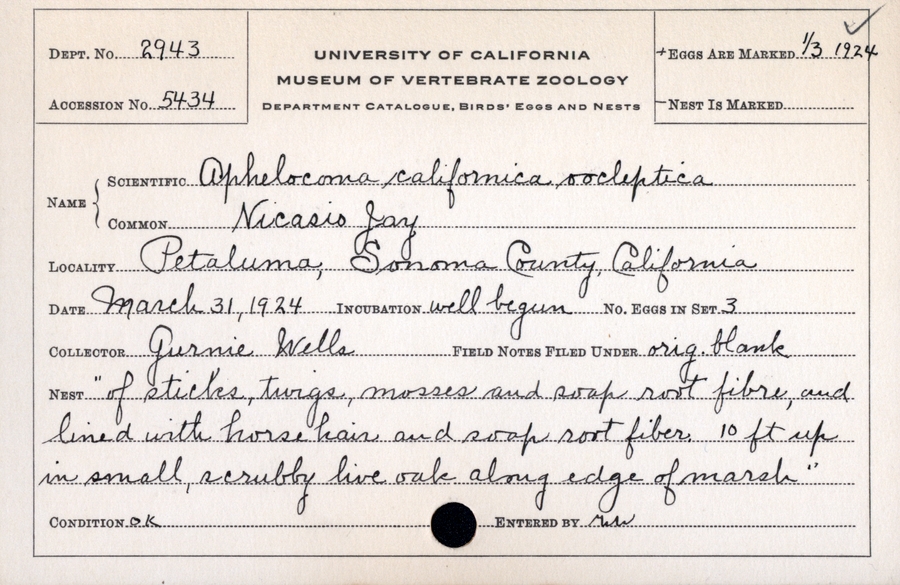 DEPT. No. 2943
ACCESSION No. 5434
UNIVERSITY OF CALIFORNIA
MUSEUM OF VERTEBRATE ZOOLOGY
DEPARTMENT CATALOGUE, BIRDS' EGGS AND NESTS
+EGGS ARE MARKED 1/3 1924
–NEST IS MARKED
NAME
SCIENTIFIC Aphelocoma californica oocleptica
COMMON Nicasio Jay
LOCALITY Petaluma, Sonoma County, California
DATE March 31, 1924 INCUBATION well begun No. EGGS IN SET 3
COLLECTOR Gurnie Wells FIELD NOTES FILED UNDER orig. blank
NEST "of sticks, twigs, mosses and soap root fibre, and
lined with horse hair and soap root fiber. 10 ft up
in small, scrubby live oak along edge of marsh"
CONDITION OK ENTERED BY